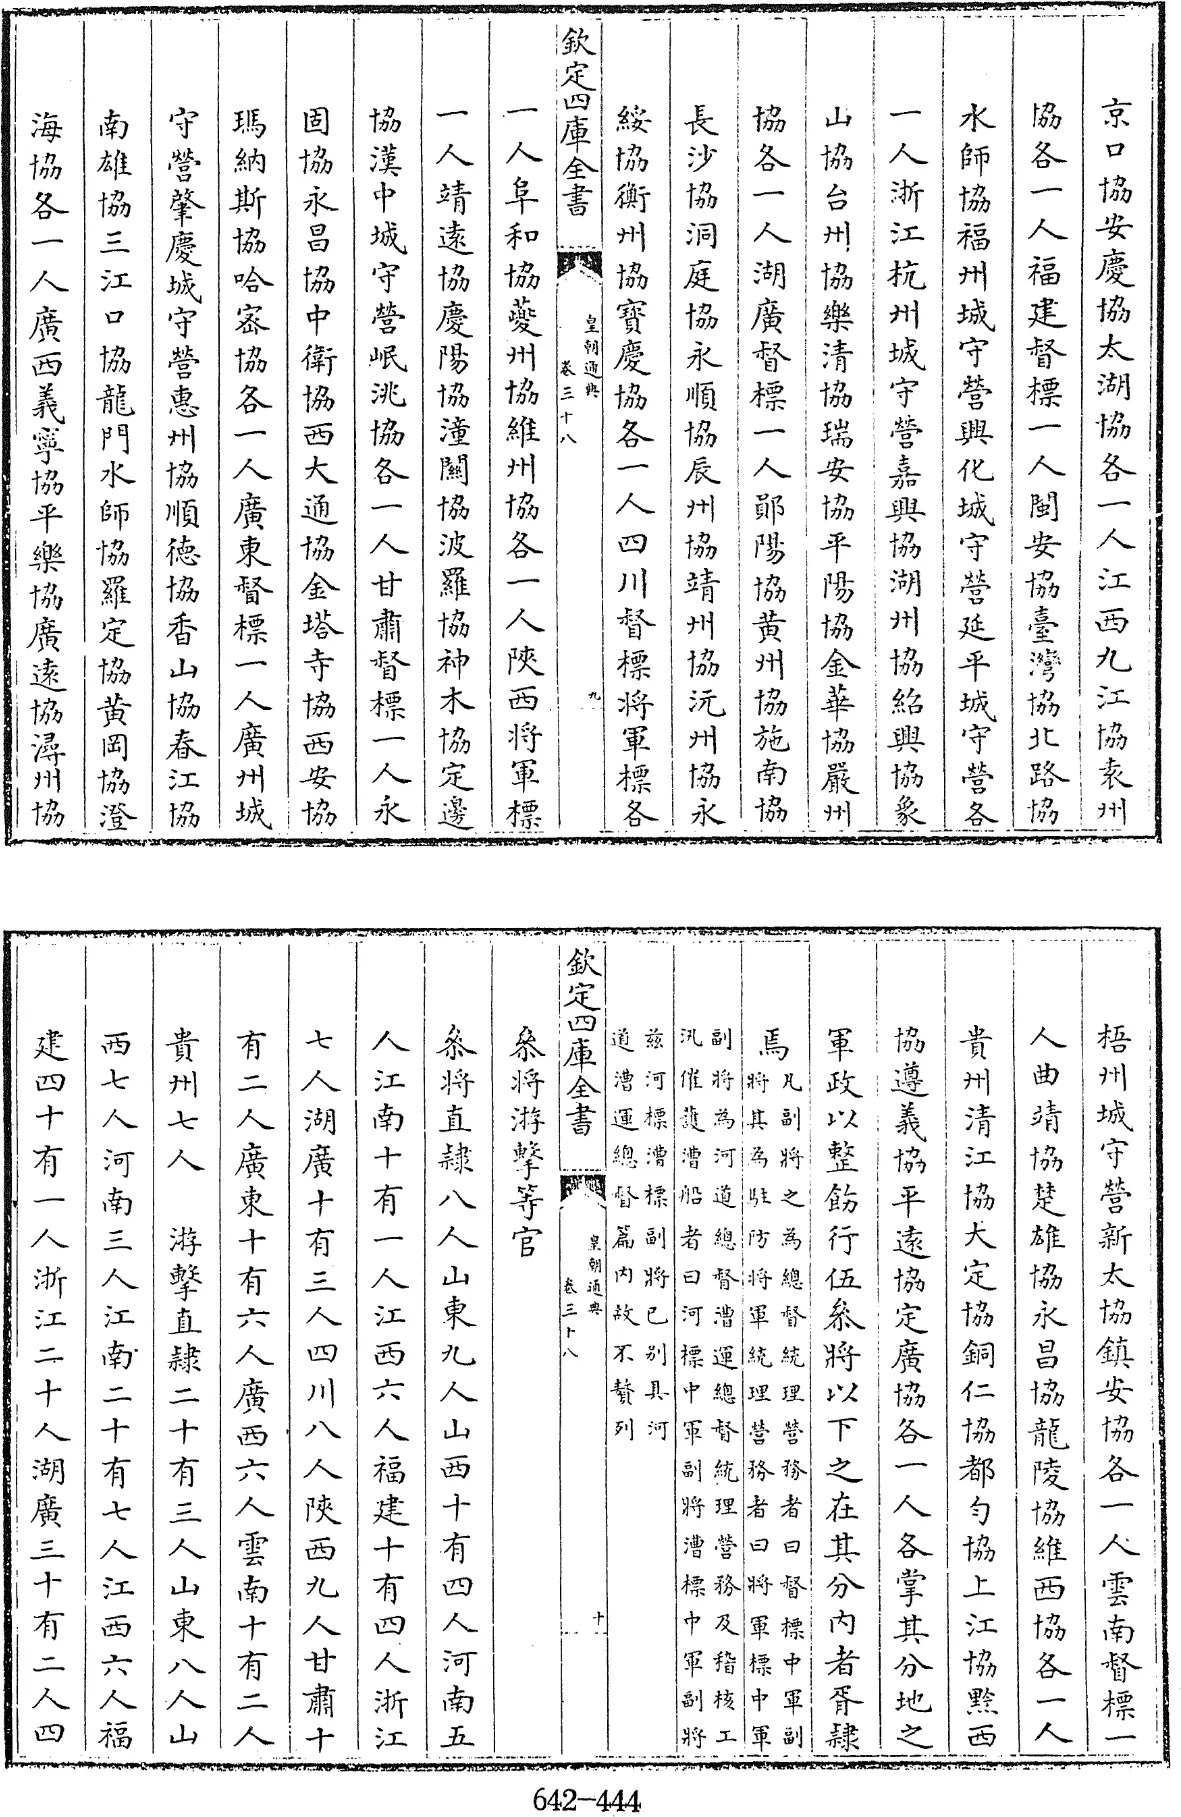 京口協安慶協太湖協各一人江西九江協袁州
協各一人福建督標一人閩安協臺灣協北路協
水師協福州城守營興化城守營延平城守營各
一人浙江杭州城守營嘉興協湖州協紹興協象
山協台州協樂清協瑞安協平陽協金華協嚴州
協各一人湖廣督標一人鄖陽協黃州協施南協
長沙協洞庭協永順協辰州協靖州協沅州協永
綏協衡州協寶慶協各一人四川督標將軍標各
欽定四庫全書
皇朝通典
卷三十八
九
一人阜和協夔州協維州協各一人陝西將軍標
一人靖遠協慶陽協潼關協波羅協神木協定邊
協漢中城守營岷洮協各一人甘肅督標一人永
固協永昌協中衛協西大通協金塔寺協西安協
瑪納斯協哈密協各一人廣東督標一人廣州城
守營肇慶城守營惠州協順德協香山協春江協
南雄協三江口協龍門水師協羅定協黃岡協澄
海協各一人廣西義寧協平樂協廣遠協潯州協
梧州城守營新太協鎮安協各一人雲南督標一
人曲靖協楚雄協永昌協龍陵協維西協各一人
貴州清江協大定協銅仁協都勻協上江協黔西
協遵義協平遠協定廣協各一人各掌其分地之
軍政以整飭行伍叅將以下之在其分內者胥隸
焉凡副將之為總督統理營務者曰督標中軍副
將其為駐防將軍統理營務者曰將軍標中軍
副將為河道總督漕運總督統理營務及稽核工
汛催護漕船者曰河標中軍副將漕標中軍副將
茲河標漕標副將已別具河
道漕運總督篇內故不贅列
欽定四庫全書
皇朝通典
卷三十八
十
叅將游擊等官
叅將直隸八人山東九人山西十有四人河南五
人江南十有一人江西六人福建十有四人浙江
七人湖廣十有三人四川八人陝西九人甘肅十
有二人廣東十有六人廣西六人雲南十有二人
貴州七人 游擊直隸二十有三人山東八人山
西七人河南三人江南二十有七人江西六人福
建四十有一人浙江二十人湖廣三十有二人四
642-444